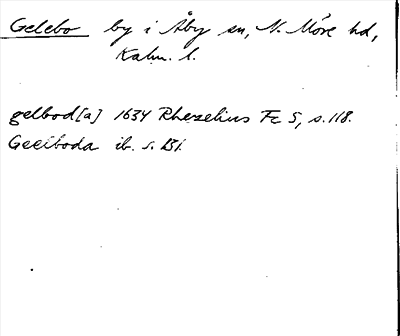 Gelebo by i Åby sn, N. Möre hd,
Kalm. l.
gelbod[a] 1634 Rhezelius Fc 5, s. 118.
Geeiboda ib. s. 131.